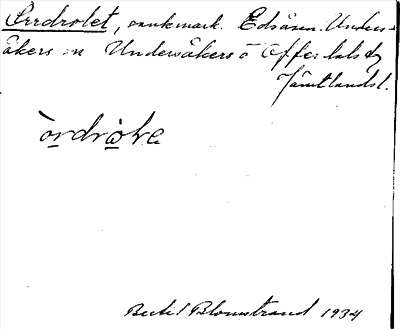 Orrdrolet, sankmark. Edsåsen. Unders-
åkers sn Undersåkers o Offerdals tg
Jämtlands l.
òrdròlre
Bertil Blomstrand 1934